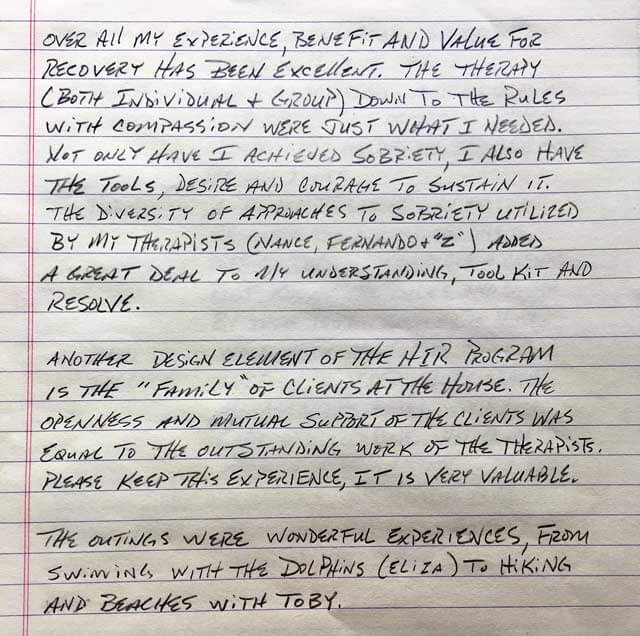 OVER All MY EXPERIENCE, BENEFIT AND VALUE FOR
RECOVERY HAS BEEN EXCELLENT. THE THERAPY
(BOTH INDIVIDUAL + GROUP) DOWN TO THE RULES
WITH COMPASSION WERE JUST WHAT I NEEDED.
NOT ONLY HAVE I ACHIEVED SOBRIETY, I ALSO HAVE
THE TOOLS, DESIRE AND COURAGE TO SUSTAIN IT.
THE DIVERSITY OF APPROACHES TO SOBRIETY UTILIZED
BY MY THERAPISTS (NANCE, FERNANDO + "Z") ADDED
A GREAT DEAL TO MY UNDERSTANDING, TOOL KIT AND
RESOLVE.
ANOTHER DESIGN ELEMENT OF THE HIR PROGRAM
IS THE "FAMILY" OF CLIENTS AT THE HOUSE. THE
OPENNESS AND MUTUAL SUPPORT OF THE CLIENTS WAS
EQUAL TO THE OUTSTANDING WORK OF THE THERAPISTS.
PLEASE KEEP THIS EXPERIENCE, IT IS VERY VALUABLE.
THE OUTINGS WERE WONDERFUL EXPERIENCES, FROM
SWIMING WITH THE DOLPHINS (ELIZA) TO HIKING
AND BEACHES WITH TOBY.